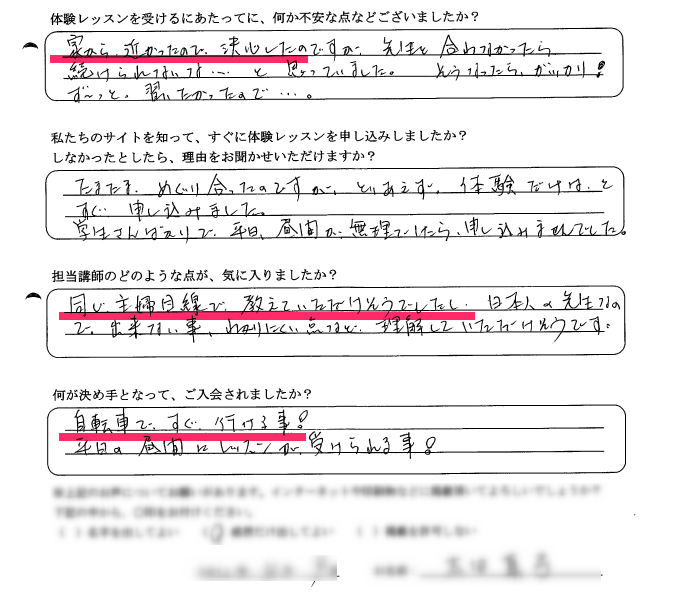 体験レッスンを受けるにあたってに、何か不安な点などございましたか？
家から近かったので、決心したのですが、先生と合わなかったら
続けられないな…と思っていました。そうなったら、ガッカリ！
ず～っと、習いたかったので…。
私たちのサイトを知って、すぐに体験レッスンを申し込みしましたか？
しなかったとしたら、理由をお聞かせいただけますか？
たまたま、めぐり合ったのですが、とりあえず、体験だけは、と
すぐ申し込みました。
学生さんばかりで、平日、昼間が、無理でしたら、申し込みませんでした。
担当講師のどのような点が、気に入りましたか？
同じ主婦目線で、教えていただけそうでしたし、日本人の先生なの
で、出来ない事、わかりにくい点など、理解していただけそうです。
何が決め手となって、ご入会されましたか？
自転車で、すぐ、行ける事！
平日の昼間にレッスンが、受けられる事！